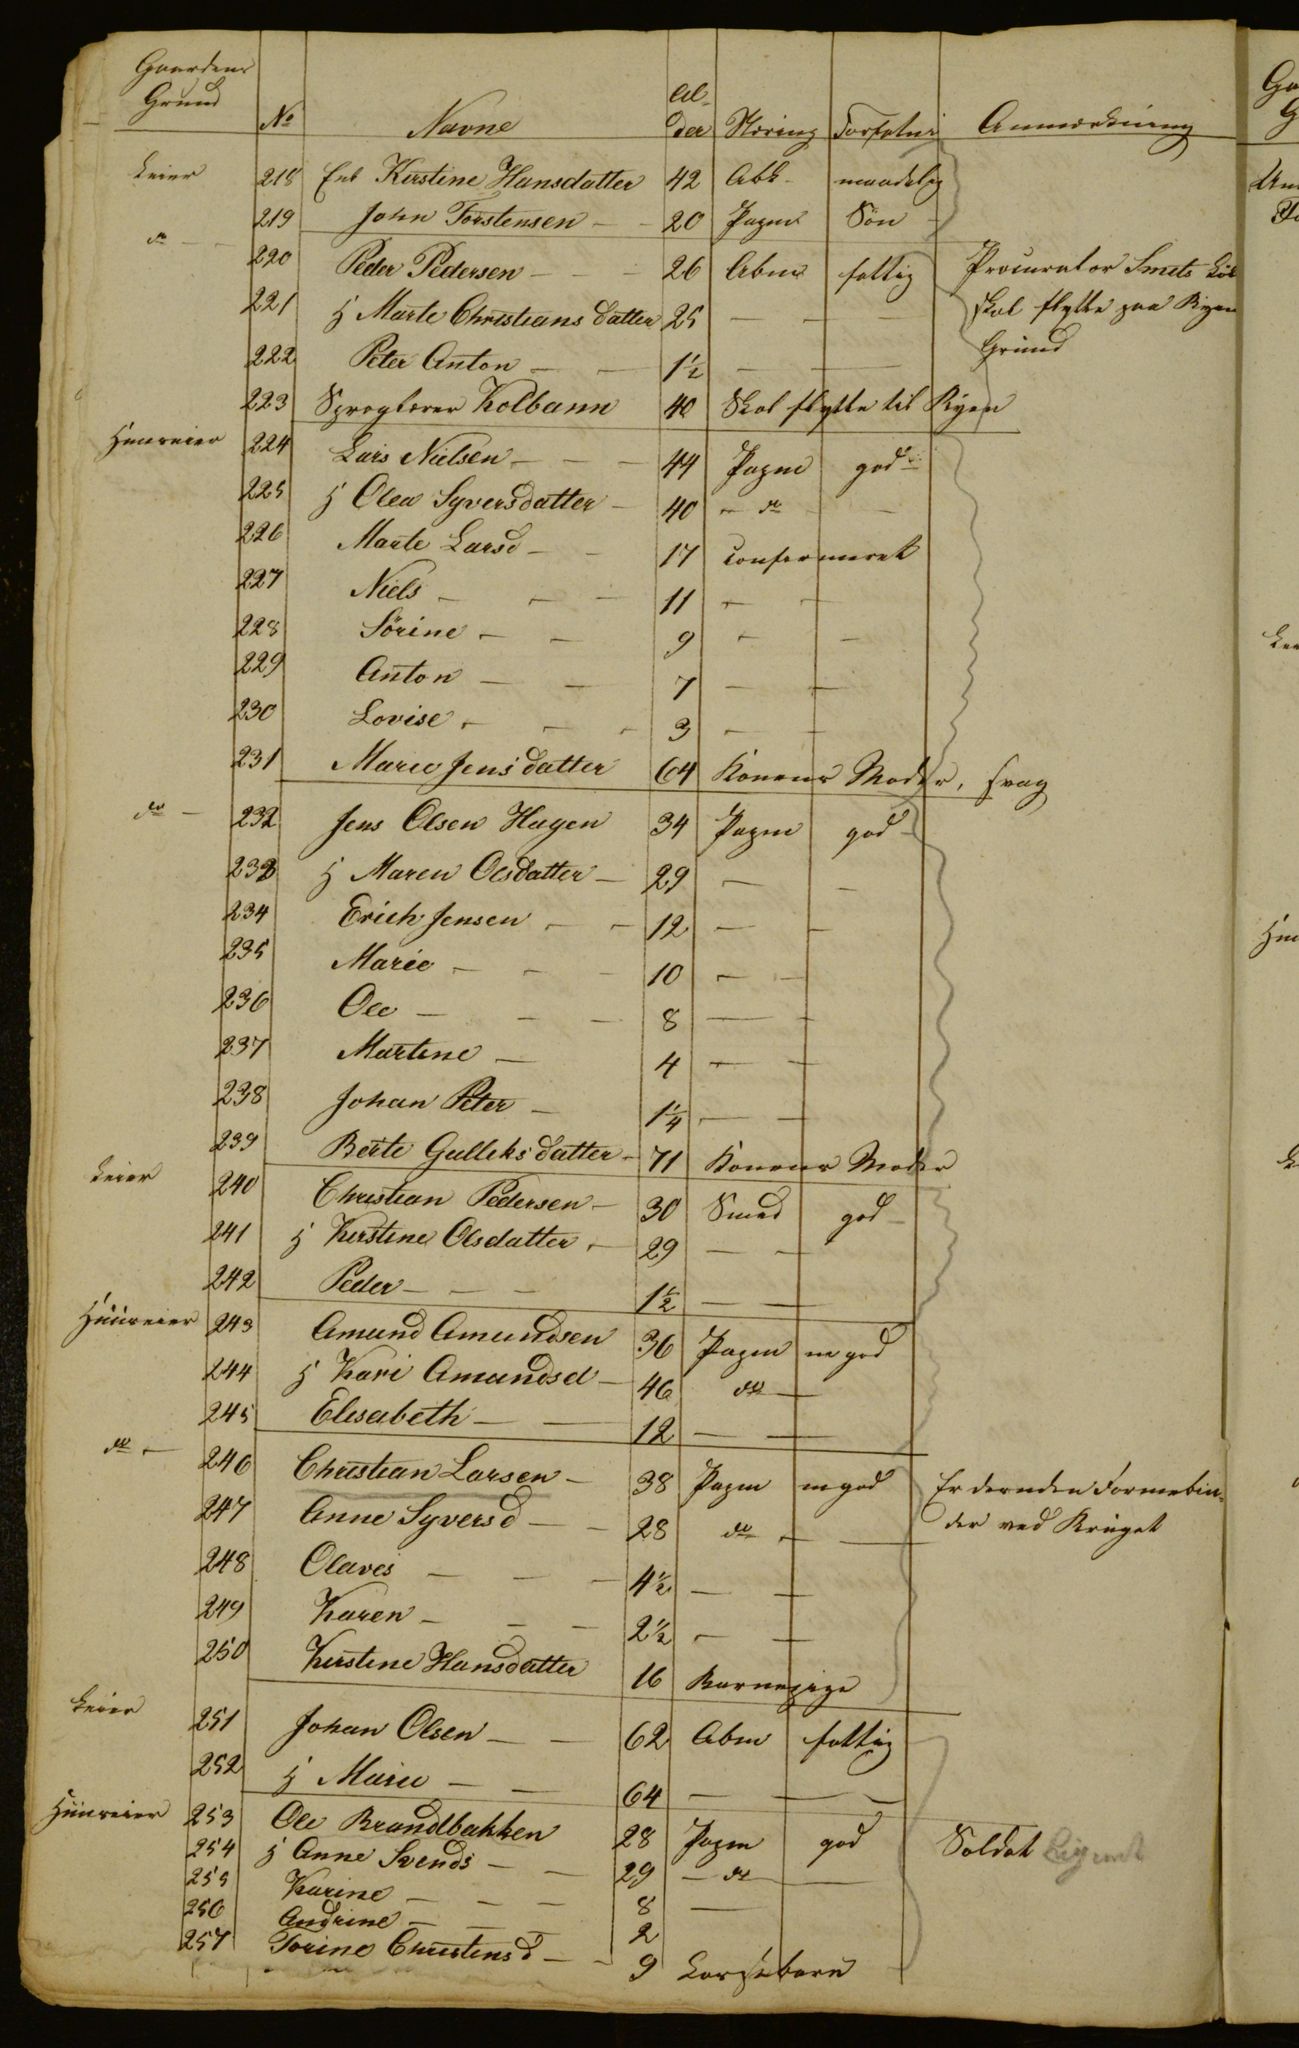 Gaardens
Grund
No Navne Al-
der Næring Forfatni Anmærkning
Leier 218 Enk Kirstine Hansdatter 42 Abk maadelig
219 John Torstensen - - 20 Papm Sön -
do - - 220 Peder Pedersen - - - 26 Abm fattig Procurator Smets
221 H Marte Christiansdatter 25 - - - skal flytte paa Ryen
222 Peter Anton - - 1½ - - Grund
223 Sproglærer Kolbann 40 Skal flytte til Ryen
Huuseier 224 Lars Nielsen - - - 44 Papm god
225 H Olea Syversdatter - 40 - do - -
226 Marte Larsd - - 17 Confermeret
227 Niels - - - 11 - -
228 Sörine - - 9 - -
229 Anton - - 7 - -
230 Lovise - - - 3 - -
231 Marie Jensdatter 64 Konens Moder, svag
do - 232 Jens Olsen Hagen 34 Papm god -
233 H Maren Olsdatter - 29 - -
234 Erich Jensen - - 12 - -
235 Marie - - - 10 - -
236 Ole - - - 8 - -
237 Martine - 4 - -
238 Johan Peter - 1¼ - -
239 Berte Gulleksdatter - 71 Konens Moder
Leier 240 Christian Pedersen - 30 Smed god -
241 H Kirstine Olsdatter - 29 - -
242 Peder - - - 1½ - -
Huuseier 243 Amund Amundsen 36 Papm m god
244 H Kari Amundsd - 46 do -
245 Elisabeth - - 12 - -
do - 246 Christian Larsen - 38 Papm m god Er der nden Formebin-
247 Anne Syversd - - 28 do - - der ved Kruget
248 Olaves - - - 4½ - -
249 Karen - - - 2½ - -
250 Kirstine Hansdatter 16 Barnepige
Leier 251 Johan Olsen - - 62 Abm fattig
252 H Marie - - 64 - - -
Huuseier 253 Ole Brandbakken 28 Papm god Soldat
254 H Anne Svends - - 29 - do - -
255 Karine - - - 8 -
256 Andrine - - - 2
257 Torine Christensd - - 9 Lægsbarn